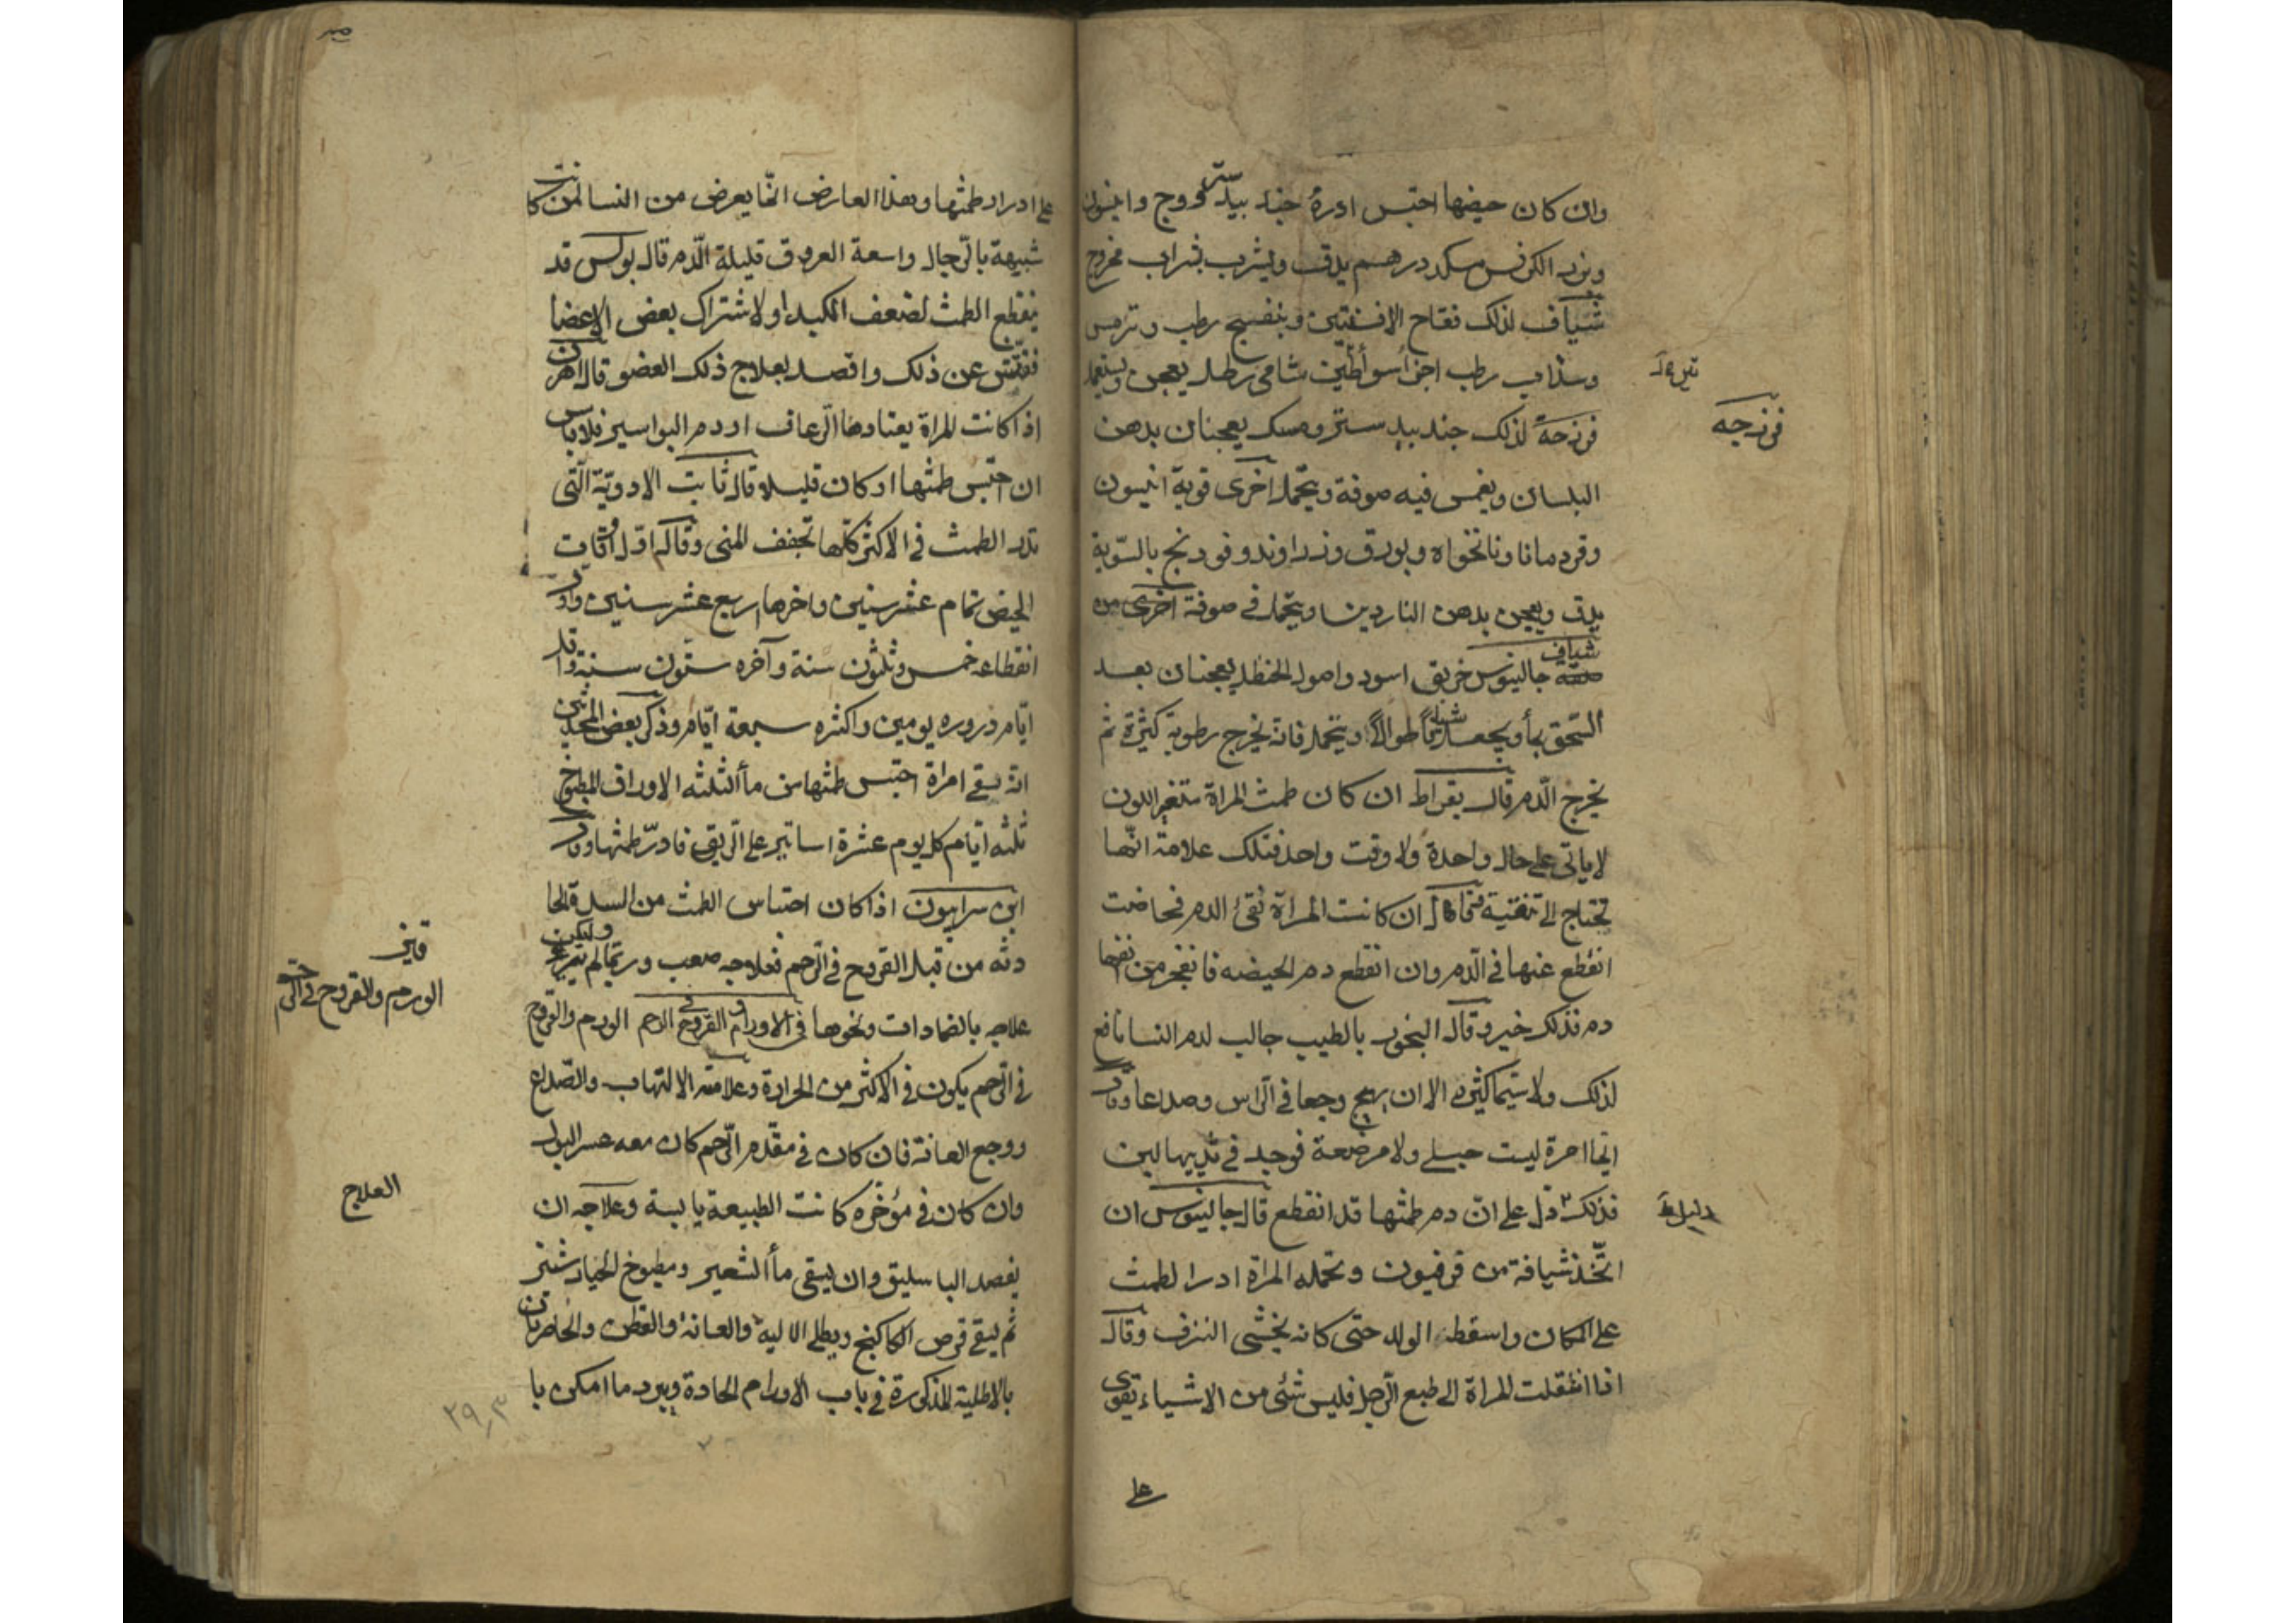 وان كان حيضها احتبس ادرهُ جند بيدستر ووج وانيسون
وبزر الكرفس درهم يدق ويشرب بشراب ممزوج
شياف لذلك فقاح الافسنتين وبنفسج رطب وترمس
وسذاب رطب اجزأ سوا طين شامى رطل يعجن ويستعمل
فرزجة لذلك جندبيدستر ومسك يعجنان بدهن
فرزجه
البلسان ويغمس فيه صوفة ويتحمل اخرى قوية انيسون
وقردمانا ونانخواه وبورق وزراوند وفودنج بالسّوية
يدق ويعجن بدهن الناردين ويتحمل فى صوفة اخرى من
شياف جالينوس خربق اسود واصول الحنظل يعجنان بعد
السّحق بمأ ويجعل شيافا طوالا ويتحمل فانه يخرج رطوبة كثيرة ثم
يخرج الدّم قال بقراط ان كان طمث المراة متغير اللون
لا ياتى على حال واحدة ولا وقت واحد فتلك علامة انّها
تحتاج الى تنقية قال ان كانت المراة تقئ الدم فحاضت
انقطع عنها فى الدّم وان انقطع دم الحيضه فانفجر من انفها
دم فذلك خير وقال البخور بالطيب جالب لدم النسا نافع
لذلك ولا سيّما كثيره الا ان يهيج وجعا فى الرّاس وصداعا وقال
ايما امرة ليست حبلى ولا مرضعة فوجد فى ثدييها لبن
فذلك دلّ على انّ دم طمثها قد انقطع قال جالينوس ان
دليل
اتّخذ شيافة من فرفيون وتحمله المراة ادر الطمث
على المكان واسقط الولد حتى كانه يخشى النزف وقال
اذا انتقلت المراة الى طبع الرّجل فليس شئ من الاشياء يقوى
على
على ادرار طمثها وهذا العارض انّما يعرض من النسا لمن كانت
شبيهة بالرّجال واسعة العروق قليلة الدّم قال بولس قد
ينقطع الطمث لضعف الكبد او لاشتراك بعض الاعضا
ففتّش عن ذلك واقصد بعلاج ذلك العضو قال اهرن
اذا كانت المراة يعتادها الرّعاف او دم البواسير فلا باس
ان احتبس طمثها او كان قليلا وقال ثابت الادويّة الّتى
تدر الطمث فى الاكثر كلّها تجفف المنى وقال اوّل اوقات
الحيض تمام عشر سنين واخرها اربع عشر سنين واوّل
انقطاعه خمس وثلثون سنة وآخره ستّون سنة واقل
ايّام دروره يومين واكثره سبعة ايّام وذكر بعض المحدثين
انه سقى امراة احتبس طمثها من مأ الثلثه الاوراق المطبوخ
ثلثه ايّام كل يوم عشرة اساتير على الرّيق فادرّ طمثها وقال
ابن سرابيون اذا كان احتباس الطمث من السدة الحا
دثه من قبل القروح فى الرّحم فعلاجه صعب وربّما لم يبرء وليكن
علاجه بالضمادات ونحوها فى الاورام والقروح فى الرحم الورم والقروح
الورم والقروح فى الرّحم
فى الرّحم يكون فى الاكثر من الحرارة وعلامته الالتهاب والصّداع
ووجع العانة فان كان فى مقدّم الرّحم كان معه عسر البول
وان كان فى مؤخّره كانت الطبيعة يابسة وعلاجه ان
العلاج
يفصد الباسليق وان يسقى مأ الشعير ومطبوخ الخيارشنبر
ثم يسقى قرص الكاكنج ويطلى الالية والعانة والقطن والخاصرتان
بالاطلية المذكورة فى باب الاورام الحادة ويبرد ما امكن با
٢٩٫٣